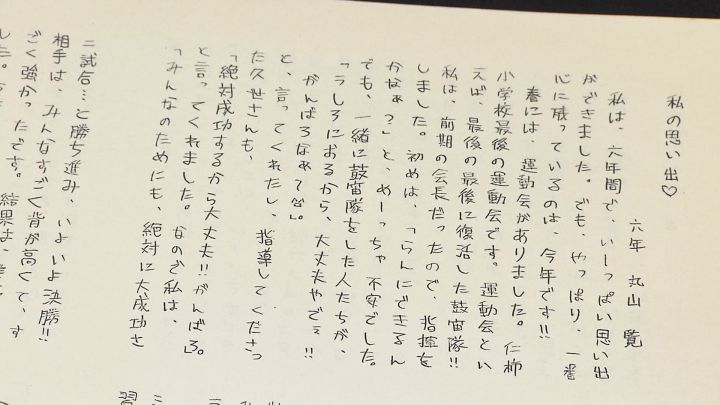 私の思い出♡
六年 丸山 覧
私は、六年間で、いーっぱい思い出
ができました。でも、やっぱり、一番
心に残っているのは、今年です!!
春には、運動会がありました。仁柿
小学校最後の運動会です。運動会とい
えば、最後の最後に復活した鼓笛隊!!
私は、前期の会長だったので、指揮を
しました。初めは、「らんにできるん
かなぁ?」と、めーっちゃ不安でした。
でも、一緒に鼓笛隊をした人たちが、
「うしろにおるから、大丈夫やでぇ!!
がんばろなぁ〜」
と、言ってくれたし、指導してくださっ
た久世さんも、
「絶対成功するから大丈夫!!がんばろ。」
と言ってくれました。なので私は、
「みんなのためにも、絶対に大成功さ
二試合…と勝ち進み、いよいよ決勝!!
相手は、みんなすごく背が高くて、す
ごく強かったです。結果は、
した。
習